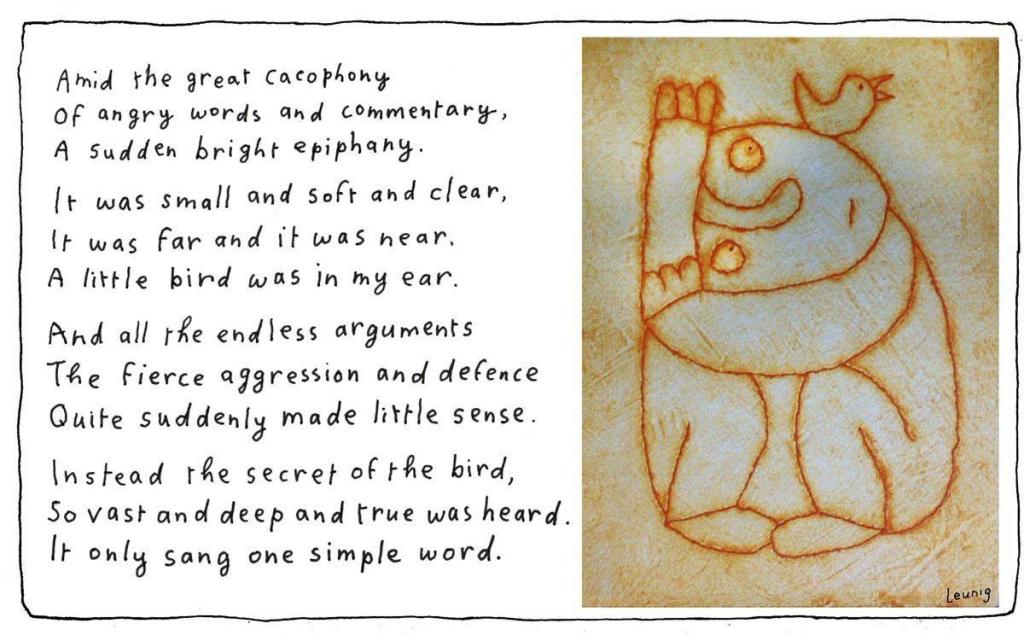 Amid the great cacophony
Of angry words and commentary,
A sudden bright epiphany.
It was small and soft and clear,
It was far and it was near.
A little bird was in my ear.
And all the endless arguments
The fierce aggression and defence
Quite suddenly made little sense.
Instead the secret of the bird,
So vast and deep and true was heard.
It only sang one simple word.
Leunig